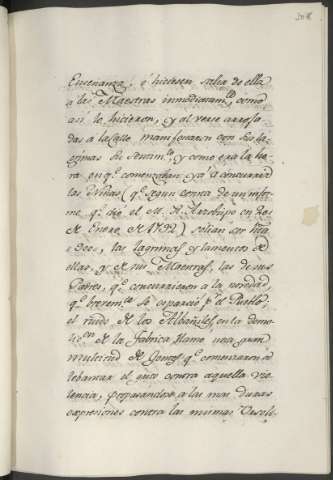 Enseñanza, é hiciesen salir de ella
a las Maestras inmediatam.te, como
así lo hicieron, y al verse arroja-
das a la Calle manifestaron con sus la-
grimas su sentim.to, y como era la ho-
ra en q.e comenzaban ya á concurrir
las Niñas (q.e segun consta de un infor-
me q.e dió el M. R. Arzobispo en
de Enero de 1792) solian ser
las lagrimas y lamentos de
ellas, y de sus Maestras, las de sus
Padres, q.e concurrieron a la novedad,
q.e brevem.te se esparció p.r el Pueblo
el ruido de los Albañiles en la demo-
lic.on de la Fabrica llamó una gran
multitud de Gentes q.e comenzaron a
lebantar el grito contra aquella vio-
lencia, preparandose a las mas duras
expresiones contra las mismas